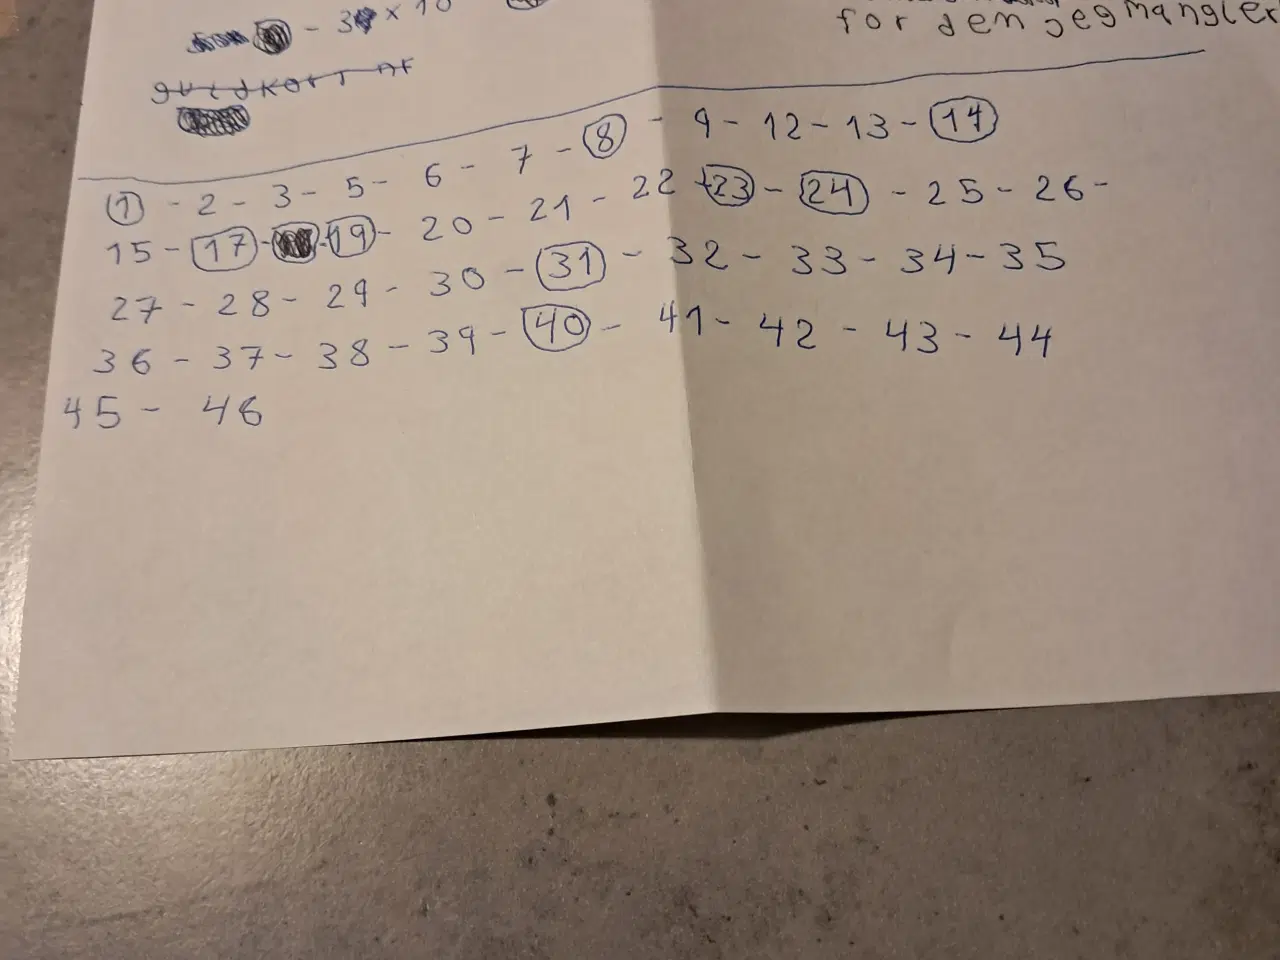 - 3 × 10
for dem jeg mangler
guldkort af
1 - 2 - 3 - 5 - 6 - 7 - 8 - 9 - 12 - 13 - 14
15 - 17 - 19 - 20 - 21 - 22 - 23 - 24 - 25 - 26 -
27 - 28 - 29 - 30 - 31 - 32 - 33 - 34 - 35
36 - 37 - 38 - 39 - 40 - 41 - 42 - 43 - 44
45 - 46